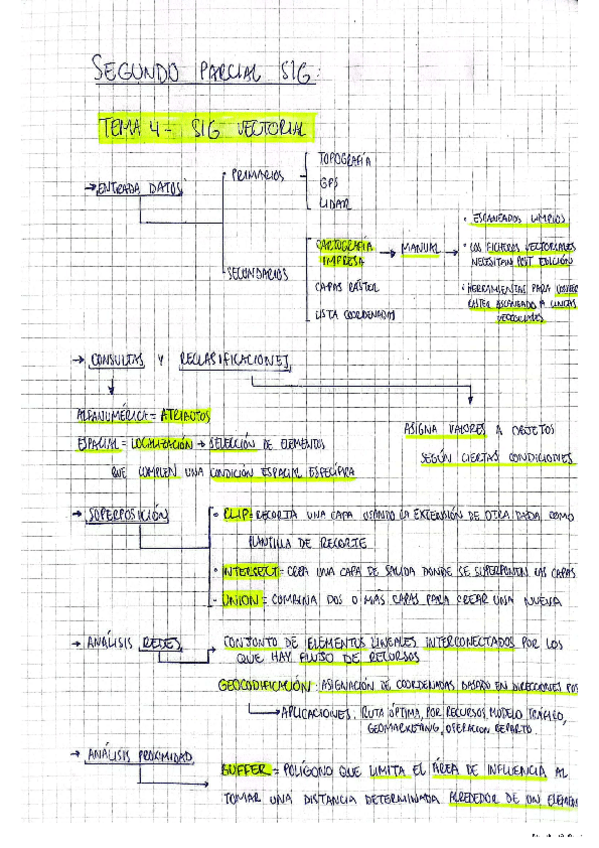 SEGUNDO PARCIAL SIG:
TEMA 4 - SIG VECTORIAL
→ ENTRADA DATOS
PRIMARIOS
TOPOGRAFÍA
GPS
LIDAR
SECUNDARIOS
CARTOGRAFÍA IMPRESA → MANUAL →
• ESCANEADOS LIMPIOS
• LOS FICHEROS VECTORIALES
NECESITAN POST EDICIÓN
• HERRAMIENTAS PARA
RASTER ESCANEADO A LINEAS
VECTORIALES
CAPAS RÁSTER
LISTA COORDENADAS
→ CONSULTAS Y RECLASIFICACIONES
ALFANUMÉRICA = ATRIBUTOS
ESPACIAL = LOCALIZACIÓN → SELECCIÓN DE ELEMENTOS
QUE CUMPLEN UNA CONDICIÓN ESPACIAL ESPECÍFICA
ASIGNA VALORES A OBJETOS
SEGÚN CIERTAS CONDICIONES
→ SUPERPOSICIÓN
• CLIP: RECORTA UNA CAPA USANDO LA EXTENSIÓN DE OTRA DADA COMO
PLANTILLA DE RECORTE
• INTERSECT = CREA UNA CAPA DE SALIDA DONDE SE SUPERPONEN LAS CAPAS
- UNION = COMBINA DOS O MÁS CAPAS PARA CREAR UNA NUEVA
→ ANÁLISIS REDES
CONJUNTO DE ELEMENTOS LINEALES INTERCONECTADOS POR LOS
QUE HAY FLUJO DE RECURSOS
GEOCODIFICACIÓN: ASIGNACIÓN DE COORDENADAS BASADO EN DIRECCIONES POS
→ APLICACIONES: RUTA ÓPTIMA, POR RECURSOS, MODELO TRÁFICO,
GEOMARKETING, OPERACION REPARTO.
→ ANÁLISIS PROXIMIDAD
BUFFER = POLÍGONO QUE LIMITA EL ÁREA DE INFLUENCIA AL
TOMAR UNA DISTANCIA DETERMINADA ALREDEDOR DE UN ELEMEN